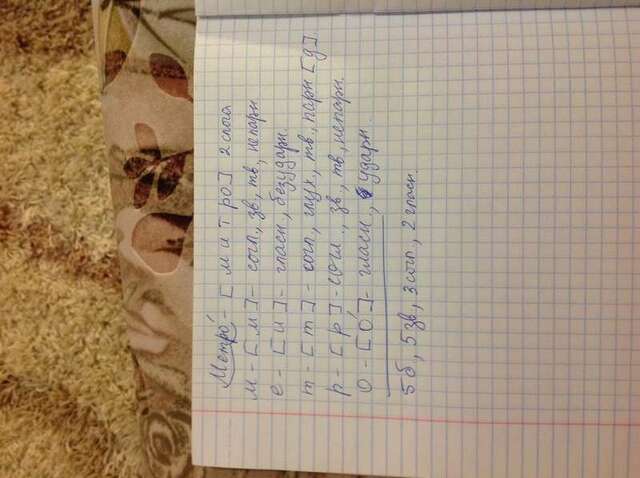 Метро́ - [митро] 2 слога
м - [м] - согл., зв, тв, непарн
е - [и] - гласн, безударн.
т - [т] - согл, глух, тв., парн [д].
р - [р] - согл., зв., тв, непарн.
о - [о́] - гласн, ударн.
5б, 5зв, 3 согл., 2 гласн